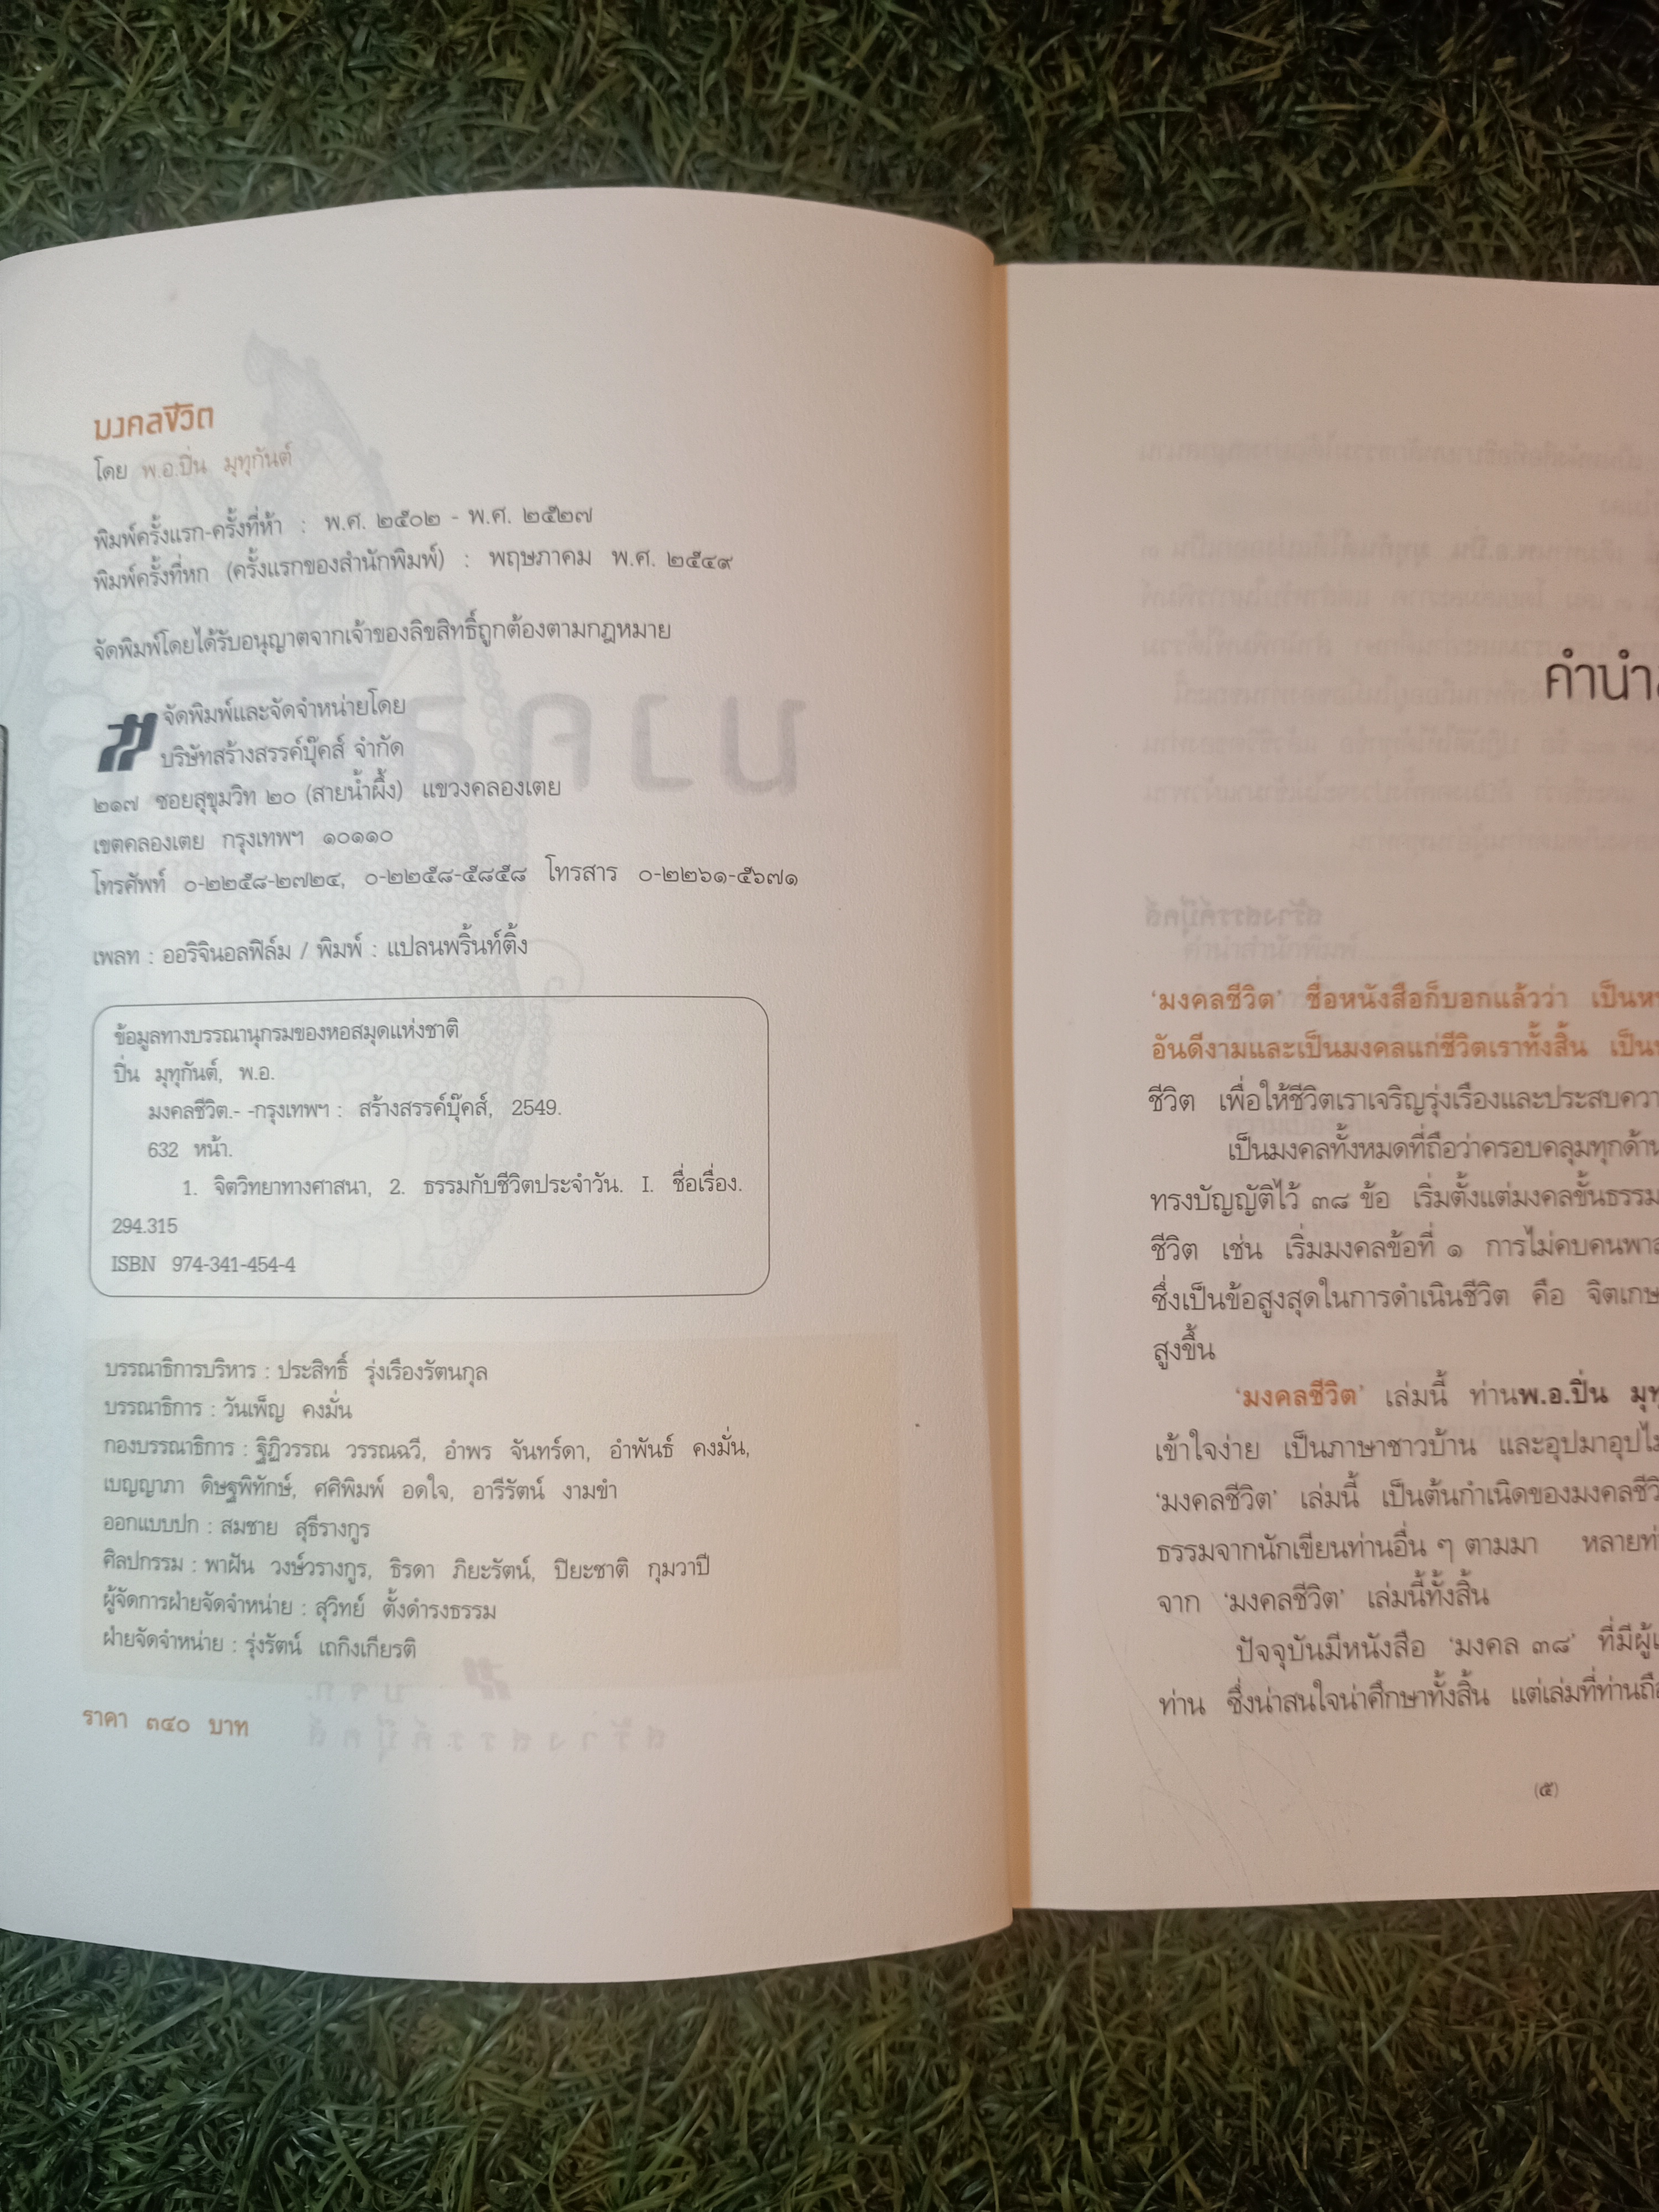 มงคลชีวิต
โดย พ.อ.ปิ่น มุทุกันต์
พิมพ์ครั้งแรก-ครั้งที่ห้า : พ.ศ. ๒๕๐๒ - พ.ศ. ๒๕๒๗
พิมพ์ครั้งที่หก (ครั้งแรกของสำนักพิมพ์) : พฤษภาคม พ.ศ. ๒๕๔๙
จัดพิมพ์โดยได้รับอนุญาตจากเจ้าของลิขสิทธิ์ถูกต้องตามกฎหมาย
จัดพิมพ์และจัดจำหน่ายโดย
บริษัทสร้างสรรค์บุ๊คส์ จำกัด
๒๑๗ ซอยสุขุมวิท ๒๐ (สายน้ำผึ้ง) แขวงคลองเตย
เขตคลองเตย กรุงเทพฯ ๑๐๑๑๐
โทรศัพท์ ๐-๒๒๕๘-๒๗๒๔, ๐-๒๒๕๘-๕๘๕๘ โทรสาร ๐-๒๒๖๑-๕๖๗๑
เพลท : ออริจินอลฟิล์ม / พิมพ์ : แปลนพริ้นท์ติ้ง
ข้อมูลทางบรรณานุกรมของหอสมุดแห่งชาติ
ปิ่น มุทุกันต์, พ.อ.
มงคลชีวิต.- -กรุงเทพฯ : สร้างสรรค์บุ๊คส์, 2549.
632 หน้า.
1. จิตวิทยาทางศาสนา, 2. ธรรมกับชีวิตประจำวัน. I. ชื่อเรื่อง.
294.315
ISBN 974-341-454-4
บรรณาธิการบริหาร : ประสิทธิ์ รุ่งเรืองรัตนกุล
บรรณาธิการ : วันเพ็ญ คงมั่น
กองบรรณาธิการ : ฐิฏิวรรณ วรรณฉวี, อำพร จันทร์ดา, อำพันธ์ คงมั่น,
เบญญาภา ดิษฐพิทักษ์, ศศิพิมพ์ อดใจ, อารีรัตน์ งามขำ
ออกแบบปก : สมชาย สุธีรางกูร
ศิลปกรรม : พาฝัน วงษ์วรางกูร, ธิรดา ภิยะรัตน์, ปิยะชาติ กุมวาปี
ผู้จัดการฝ่ายจัดจำหน่าย : สุวิทย์ ตั้งดำรงธรรม
ฝ่ายจัดจำหน่าย : รุ่งรัตน์ เถกิงเกียรติ
ราคา ๓๔๐ บาท
คำนำ
'มงคลชีวิต' ชื่อหนังสือก็บอกแล้วว่า เป็น
อันดีงามและเป็นมงคลแก่ชีวิตเราทั้งสิ้น เป็น
ชีวิต เพื่อให้ชีวิตเราเจริญรุ่งเรืองและประสบ
เป็นมงคลทั้งหมดที่ถือว่าครอบคลุมทุกด้าน
ทรงบัญญัติไว้ ๓๘ ข้อ เริ่มตั้งแต่มงคลขั้นธรรม
ชีวิต เช่น เริ่มมงคลข้อที่ ๑ การไม่คบคนพา
ซึ่งเป็นข้อสูงสุดในการดำเนินชีวิต คือ จิตเกษ
สูงขึ้น
'มงคลชีวิต' เล่มนี้ ท่านพ.อ.ปิ่น มุ
เข้าใจง่าย เป็นภาษาชาวบ้าน และอุปมาอุปไม
'มงคลชีวิต' เล่มนี้ เป็นต้นกำเนิดของมงคลชีวิ
ธรรมจากนักเขียนท่านอื่น ๆ ตามมา หลายท่
จาก 'มงคลชีวิต' เล่มนี้ทั้งสิ้น
ปัจจุบันมีหนังสือ 'มงคล ๓๘' ที่มีผู้
ท่าน ซึ่งน่าสนใจน่าศึกษาทั้งสิ้น แต่เล่มที่ท่านถือ
(๕)